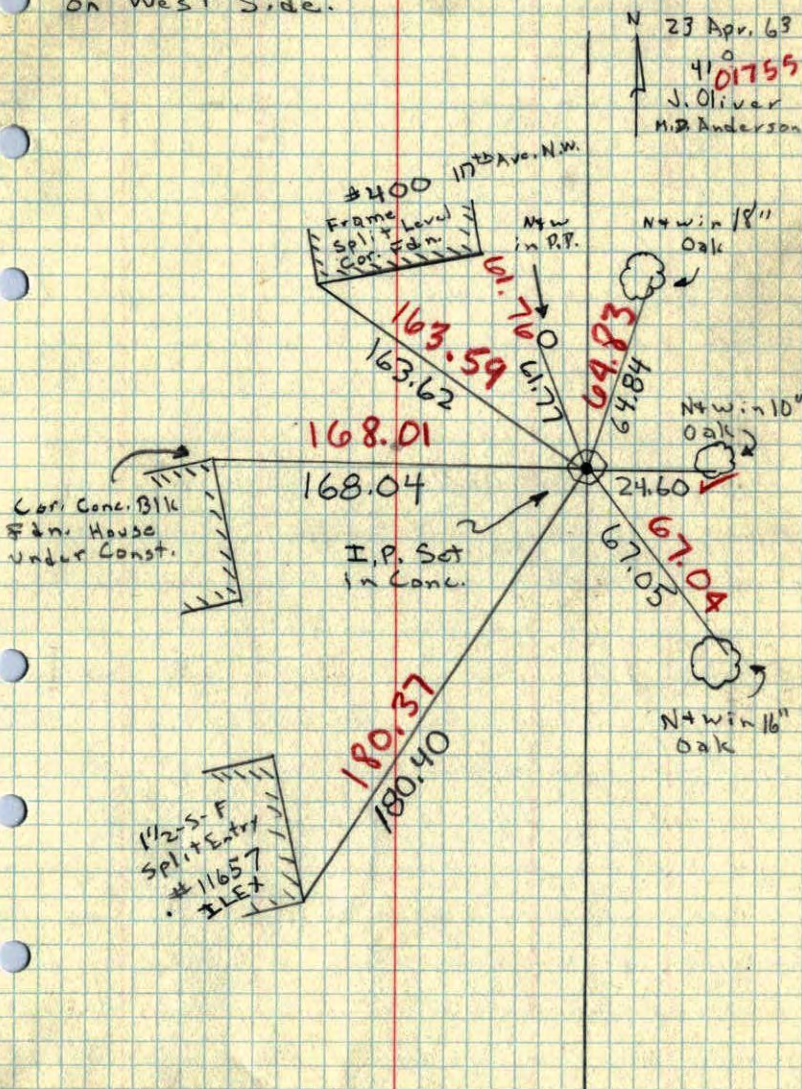 on West Side.
N
23 Apr. 63
41°
01755
J. Oliver
M.D. Anderson
#400 117th Ave. N.W.
Frame
Split Level
Cor. Fdn.
N+W
in P.P.
N+W in 18"
Oak
61.76
61.77
64.83
64.84
163.59
163.62
168.01
168.04
N+W in 10"
Oak
24.60
Cor. Conc. Blk
Fdn. House
Under Const.
I.P. Set
in Conc.
67.04
67.05
N+W in 16"
Oak
180.37
180.40
1 1/2-S-F
Split Entry
#11657
ILEX